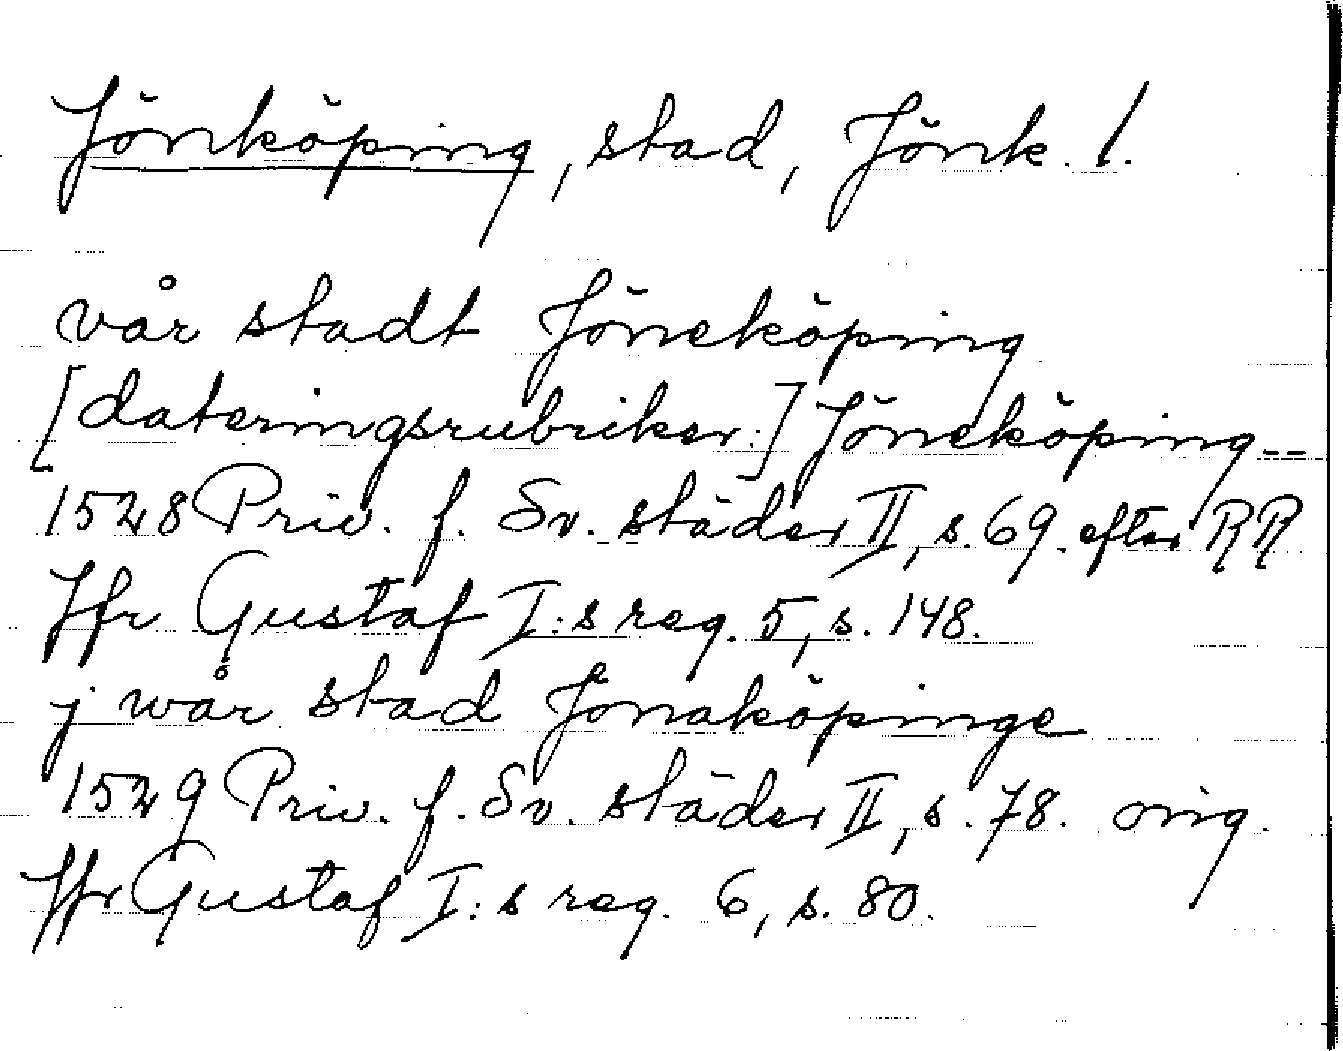 Jönköping, stad, Jönk. l.
vår stadt Jöneköping
[dateringsrubriker:] Jöneköping --
1528 Priv. f. Sv. städer II, s. 69. efter RR
Jfr Gustaf I:s reg. 5, s. 148.
j wår stad Jönaköpinge
1529 Priv. f. Sv. städer II, s. 78. orig.
Jfr Gustaf I:s reg. 6, s. 80.